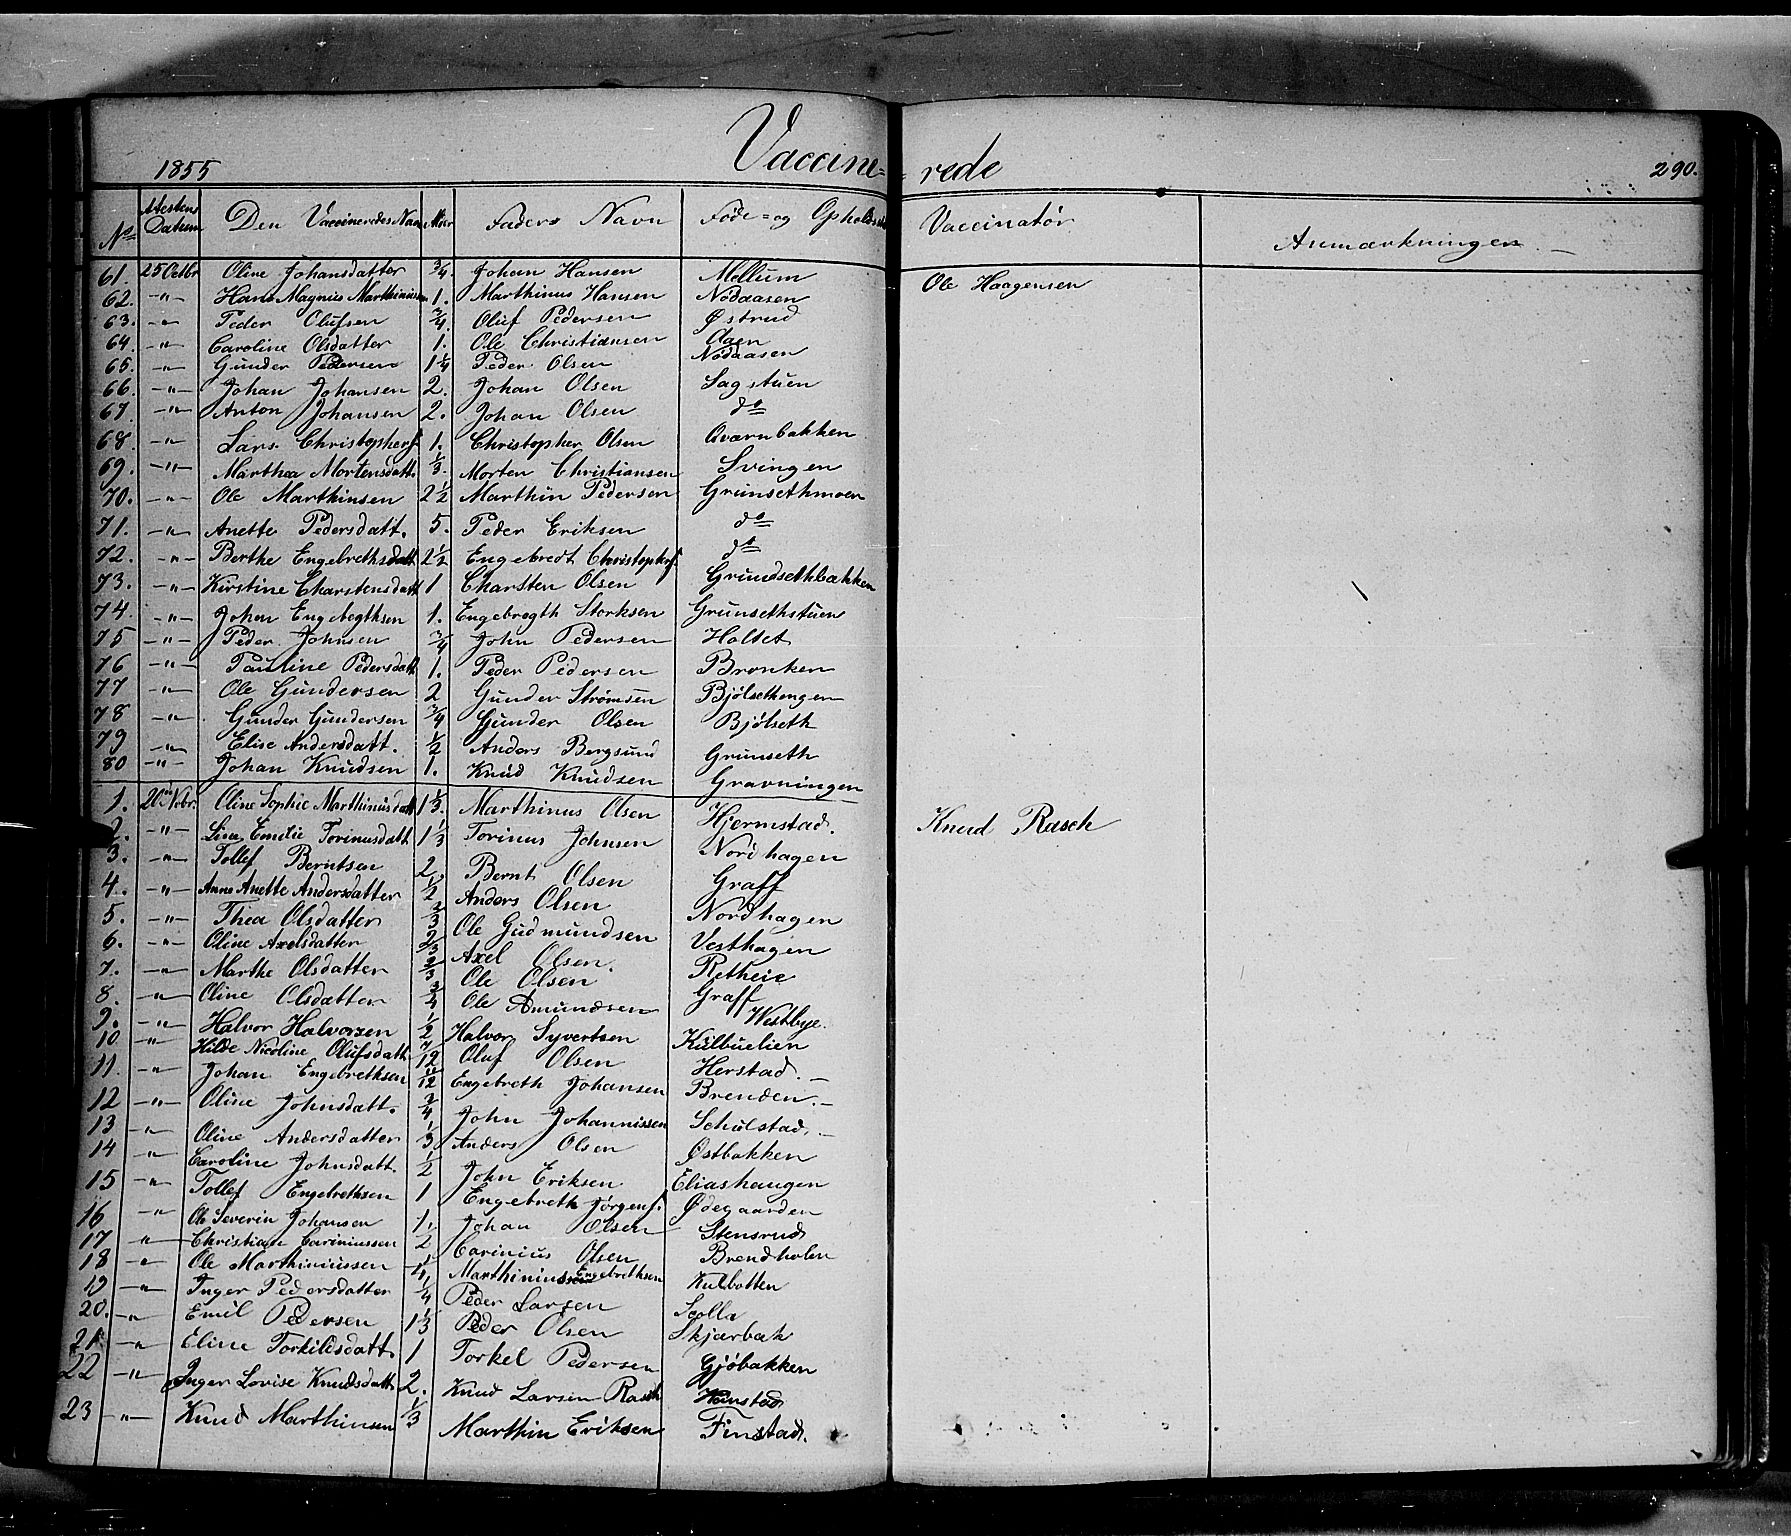 1855 Vaccine= =rede 290.
No Attestens Datum Den Vaccineredes Navn Alder Faders Navn Føde= og Opholdssted Vaccinatør Anmærkninger
61. 25 Octbr Oline Johansdatter 3/4. Johan Hansen Mellum Ole Haagensen
62. -"- Hans Magnus Marthinussen 1. Marthinus Hansen Nødaasen
63. -"- Peder Olufsen 3/4 Oluf Pedersen Østrud
64. -"- Caroline Olsdatter 1. Ole Christiansen Aaen
65. -"- Gunder Pedersen 1 1/4 Peder Olsen Nødaasen
66. -"- Johan Johansen 2. Johan Olsen Sagstuen
67. -"- Anton Johansen 2. Johan Olsen do
68. -"- Lars Christophers. 1. Christopher Olsen Qværnbakken
69. -"- Marthea Mortensdatt. 1/3. Morten Christiansen Svingen
70. -"- Ole Marthinsen 2 1/2 Marthin Pedersen Grunsethmoen
71. -"- Anette Pedersdatt. 5. Peder Eriksen do
72. -"- Berthe Engebrethsdatt 2 1/2 Engebredt Christophers. do
73. -"- Kirstine Charstensdatt 1 Charsten Olsen Grundsethbakken
74. -"- Johan Engebregthsen 1. Engebregth Storksen Grunsethstuen
75 -"- Peder Johnsen 3/4 John Pedersen Holtet
76 -"- Pauline Pedersdatt 1. Peder Pedersen Bronken
77 -"- Ole Gundersen 2 Gunder Strømsen Bjølsethengen
78 -"- Gunder Gundersen 3/4 Gunder Olsen Bjølseth
79 -"- Elise Andersdatt. 1/2 Anders Bergsund Grunseth
80 -"- Johan Knudsen 1. Knud Knudsen Gravningen
1. 20 Novbr. Oline Sophie Marthinusdatt 1 1/3. Marthinus Olsen Hjermstad. Knud Rasch
2. -"- Lina Emilie Torinusdatt 1 1/3 Torinus Johnsen Nordhagen
3. -"- Tollef Berntsen 2. Bernt Olsen Graff
4. -"- Anne Anette Andersdatter 1/2 Anders Olsen Nordhagen
5. -"- Thea Olsdatter 2/3 Ole Gudmundsen Vesthagen
6. -"- Oline Axelsdatter 2/3 Axel Olsen. Retheie
7. -"- Marthe Olsdatter 2/3 Ole Olsen Graff
8. -"- Oline Olsdatter 3/4 Ole Amundsen Westbye.
9. -"- Halvor Halvorsen 1/2 Halvor Syvertsen Kulbuelien
10 -"- Hilde Nicoline Olufsdatt 7/12 Oluf Olsen Herstad.
11. -"- Johan Engebrethsen 11/12 Engebreth Johansen Brenden.
12 -"- Oline Johnsdatt. 3/4 John Johannissen Schulstad.
13 -"- Oline Andersdatter 1/3 Anders Olsen Østbakken
14 -"- Caroline Johnsdatt 1/2 John Eriksen Eliashaugen
15 -"- Tollef Engebrethsen 1 Engebreth Jørgens. Ødegaarden
16 -"- Ole Severin Johansen 1. Johan Olsen Stensrud
17 -"- Christian Cariniussen 1/2 Carinius Olsen Brendholen
18 -"- Ole Marthiniussen 1/4 Marthinius Engebrethsen Kulbotten
19 -"- Inger Pedersdatter 1/4 Peder Larsen Scolla
20. -"- Emil Pedersen 1 1/3 Peder Olsen Skjærbæk
21. -"- Eline Torkildsdatt. 1 Torkel Pedersen Gjøbakken
22 -"- Inger Lovise Knudsdatt 2. Knud Larsen Rasch
23 -"- Knud Marthinsen 1/3 Marthin Eriksen Finstad.